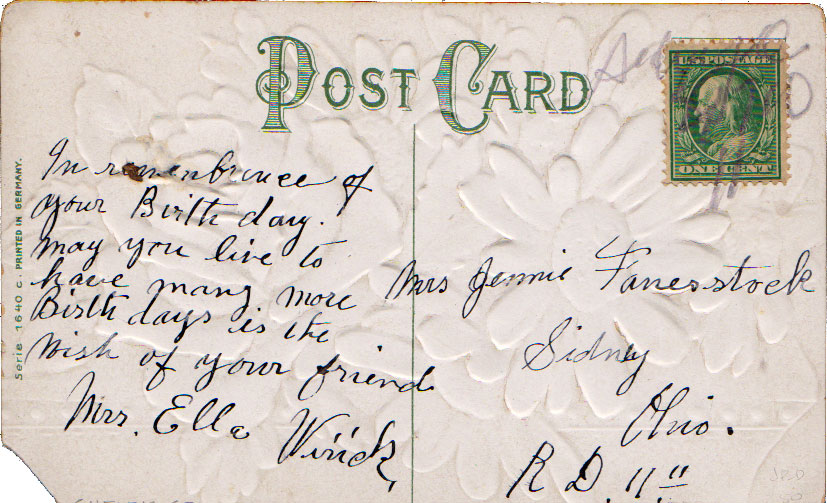 POST CARD
U.S. POSTAGE
ONE CENT
In remenbrnce of
your Birth day.
may you live to
have many more
Birth days is the
wish of your friend
Mrs. Ella Virick,
Mrs Jennie Fanesstock
Sidney
Ohio.
R D. 11"
Serie 1640 C. PRINTED IN GERMANY.
JBD